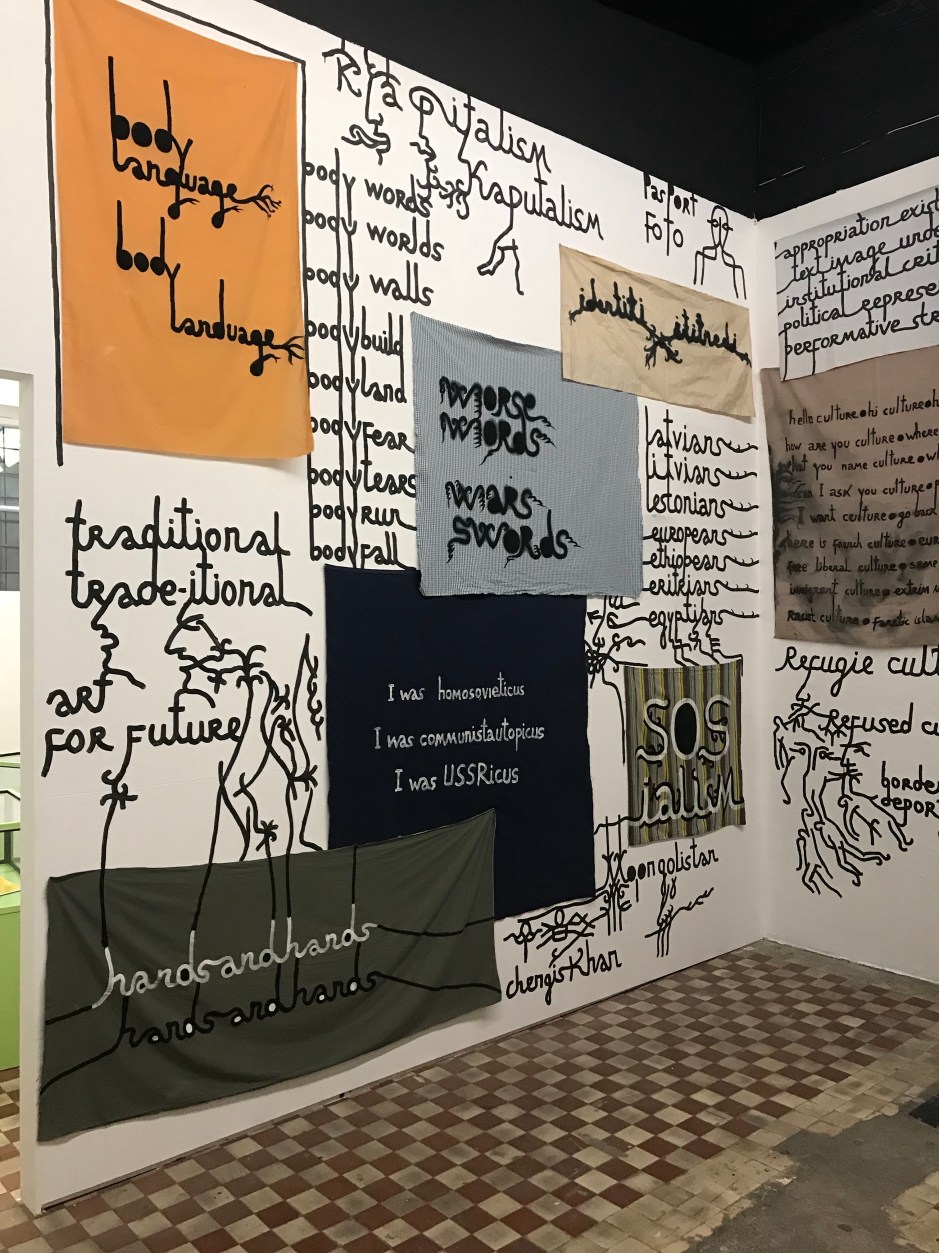 body
language
body
landuage
Kapitalism
Kaputalism
body words
body worlds
body walls
body build
body land
body fear
body tears
body run
body fall
Pasport
Foto
identiti ititnedi
worse
words
wars
swords
latvians
litvians
lestonians
europeans
ethiopeans
eritrians
egyptians
traditional
trade-itional
art
FOR FUTURE
I was homosovieticus
I was communistautopicus
I was USSRicus
SOS
ialism
Mongolistan
chengis Khan
hands and hands
hands and hands
appropriation exist
text image unde
institutional crit
political represe
performative str
hello culture hi culture h
how are you culture where
what you name culture w
can I ask you culture
I want culture go back
here is french culture eur
free liberal culture some
imigrant culture extrim
Rasist culture Fanetic isla
Refugie cult
Refused cu
border
deport